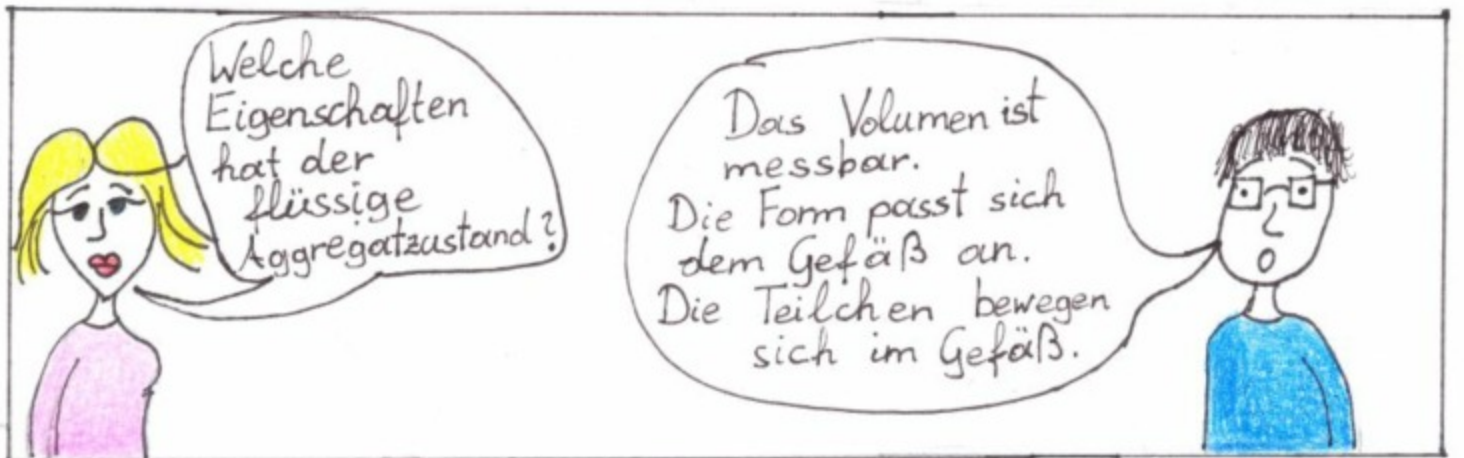 Welche
Eigenschaften
hat der
flüssige
Aggregatzustand?
Das Volumen ist
messbar.
Die Form passt sich
dem Gefäß an.
Die Teilchen bewegen
sich im Gefäß.